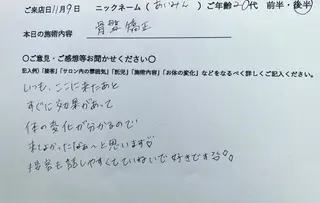 ご来店日11月9日 ニックネーム(あいみん)ご年齢20代 前半・後半)
本日の施術内容 骨盤矯正
〇ご意見・ご感想等お聞かせください〇
記入例)「接客」「サロン内の雰囲気」「託児」「施術内容」「お体の変化」などをなるべく詳しくご記入ください。
いつも、ここに来たあと
すぐに効果があって
体の変化が分かるので
来てよかったなぁ〜と思います♡
接客も話しやすくてていねいで好きです♡